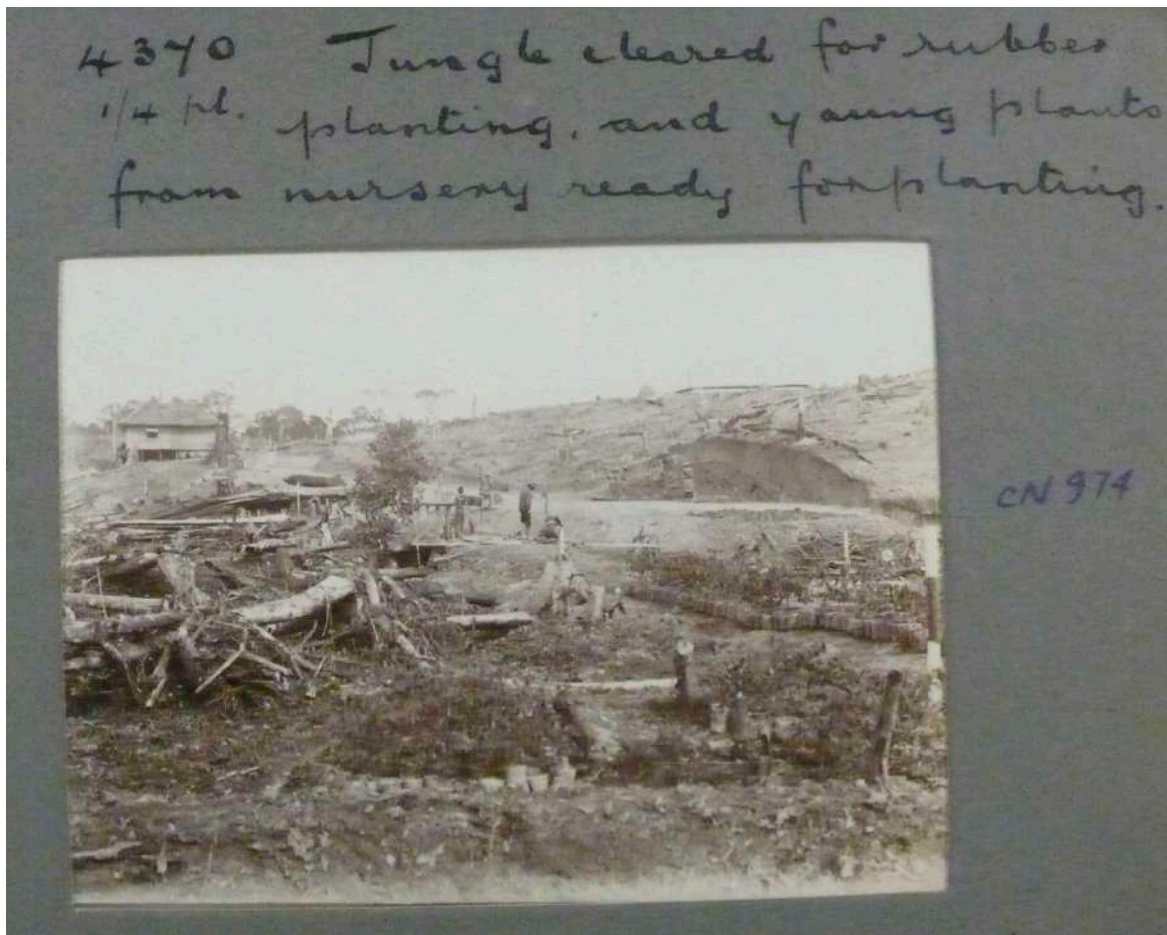 4370 Jungle cleared for rubber
1/4 pl. planting, and young plants
from nursery ready for planting.
CN 974